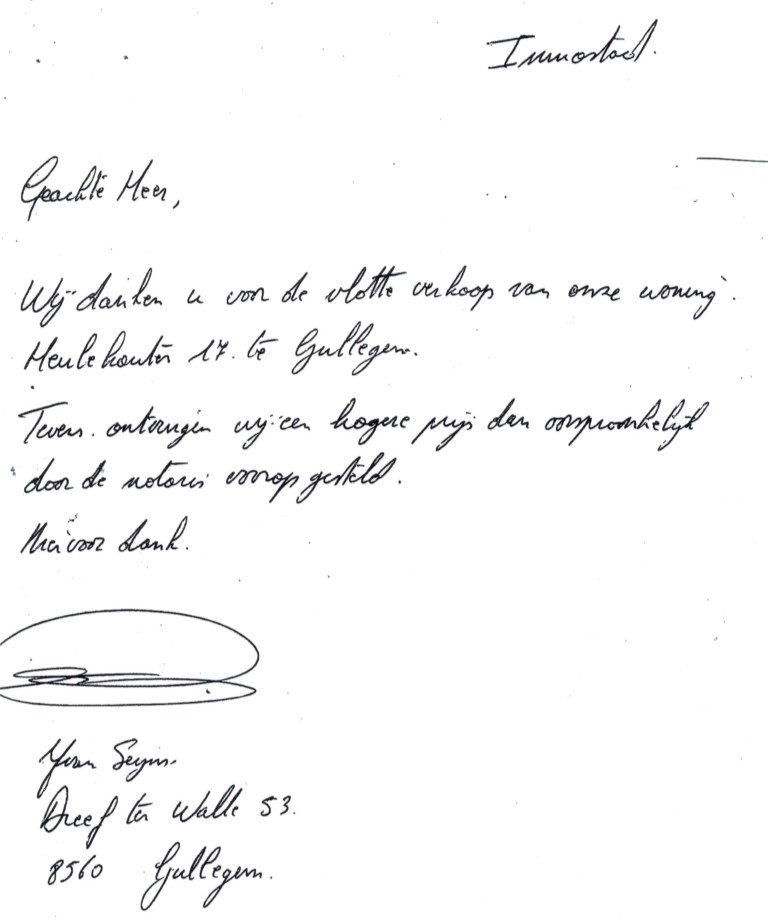 Immostad.
Geachte Heer,
Wij danken u voor de vlotte verkoop van onze woning.
Heulehouter 17. te Gullegem.
Tevens. ontvingen wij een hogere prijs dan oorspronkelijk
door de notaris voorop gesteld.
voor dank.
Yvan
Dreef ter Walle 53.
8560 Gullegem.